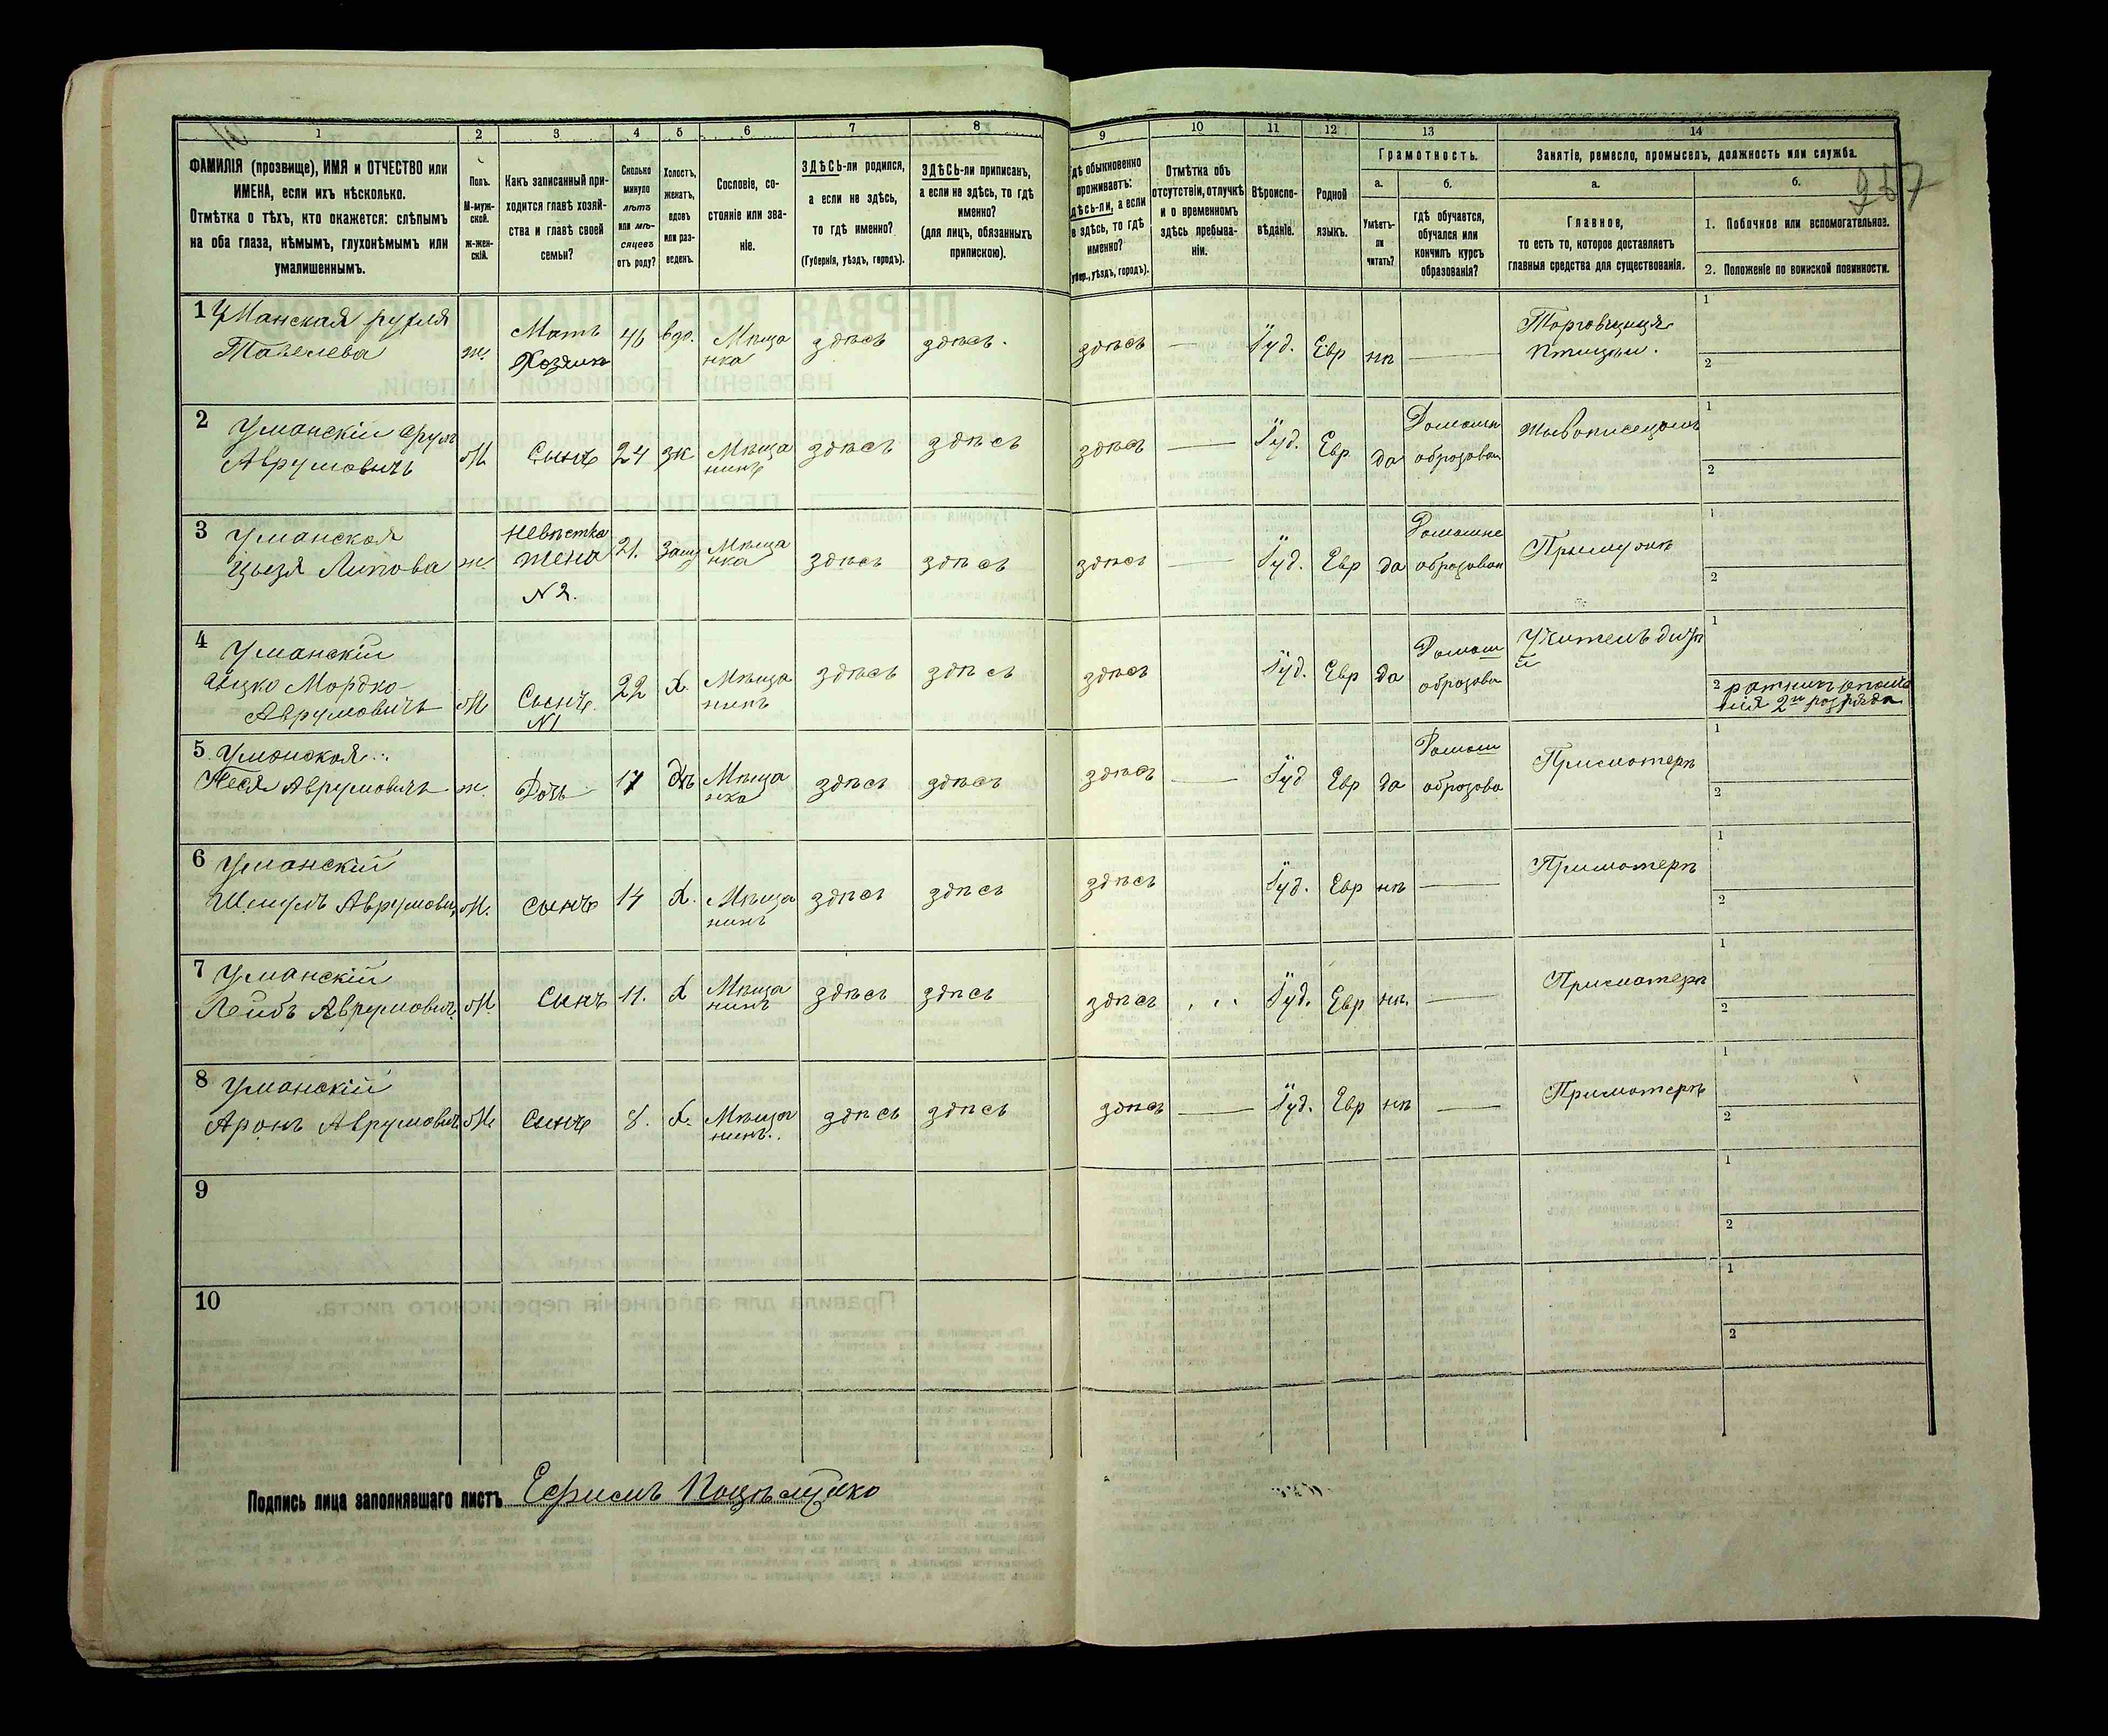 1
2
3
4
5
6
7
8
ФАМИЛІЯ (прозвище), ИМЯ и ОТЧЕСТВО или
ИМЕНА, если ихъ нѣсколько.
Отмѣтка о тѣхъ, кто окажется: слѣпымъ
на оба глаза, нѣмымъ, глухонѣмымъ или
умалишеннымъ.
Полъ.
М-муж-
ской.
ж-жен-
скій.
Какъ записанный при-
ходится главѣ хозяй-
ства и главѣ своей
семьи?
Сколько
минуло
лѣтъ
или мѣ-
сяцевъ
отъ роду?
Холостъ,
женатъ,
вдовъ
или раз-
веденъ.
Сословіе, со-
стояніе или зва-
ніе.
ЗДѢСЬ-ли родился,
а если не здѣсь,
то гдѣ именно?
(Губернія, уѣздъ, городъ).
ЗДѢСЬ-ли приписанъ,
а если не здѣсь, то гдѣ
именно?
(для лицъ, обязанныхъ
припискою).
9
10
11
12
13
14
дѣ обыкновенно
проживаетъ:
дѣсь-ли, а если
е здѣсь, то гдѣ
именно?
убер., уѣздъ, городъ).
Отмѣтка объ
отсутствіи, отлучкѣ
и о временномъ
здѣсь пребыва-
ніи.
Вѣроиспо-
вѣданіе.
Родной
языкъ.
Грамотность.
а.
б.
Умѣетъ-
ли
читать?
гдѣ обучается,
обучался или
кончилъ курсъ
образованія?
Занятіе, ремесло, промыселъ, должность или служба.
а.
б.
Главное,
то есть то, которое доставляетъ
главныя средства для существованія.
1. Побочное или вспомогательное.
2. Положеніе по воинской повинности.
267
1 Уманская рухля
ж.
Мать
Хозяина
46
вдо.
Мѣща
нка
здѣсь
здѣсь.
здѣсь
—
Іуд.
Евр
нѣ
—
Торговщиця
птицы.
1
2
2 Уманскій Срул
Аврумовичъ
М
Сынъ
24
жк
Мѣща
нинъ
здѣсь
здѣсь
здѣсь
—
Іуд.
Евр
да
Домашн
образован
Живописецомъ
1
2
3 Уманская
ж.
Невѣстка
жена
№2.
21.
Заму
Мѣща
нка
здѣсь
здѣсь
здѣсь
—
Іуд.
Евр
да
Домашне
образован
1
2
4 Уманскій
Ицко Мордко
Аврумовичъ
М
Сынъ
№1
22
Х.
Мѣща
нинъ
здѣсь
здѣсь
здѣсь
Іуд.
Евр
да
Домаш
образова
Учитель дѣте
й
1
2 ратникъ ополче
нія 2го розряда
5 Уманская
Песя Аврумовичъ
ж.
Дочь
17
Мѣща
нка
здѣсь
здѣсь
здѣсь
—
Іуд
Евр
да
Домаш
образова
Присмотерѣ
1
2
6 Уманскій
Шмулъ Аврумови
М.
сынъ
14
Х.
Мѣща
нинъ
здѣсь
здѣсь
здѣсь
Іуд.
Евр
нѣ
—
Присмотерѣ
1
2
7 Уманскій
Лейбъ Аврумовичъ
М.
Сынъ
11.
Х
Мѣща
нинъ
здѣсь
здѣсь
здѣсь
Іуд.
Евр
нѣ.
—
Присмотерѣ
1
2
8 Уманскій
Аронъ Аврумовичъ
М
Сынъ
8.
Х.
Мѣща
нинъ.
здѣсь
здѣсь
здѣсь
—
Іуд.
Евр
нѣ
—
Присмотерѣ
1
2
9
1
2
10
1
2
Подпись лица заполнявшаго листъ Ефимъ